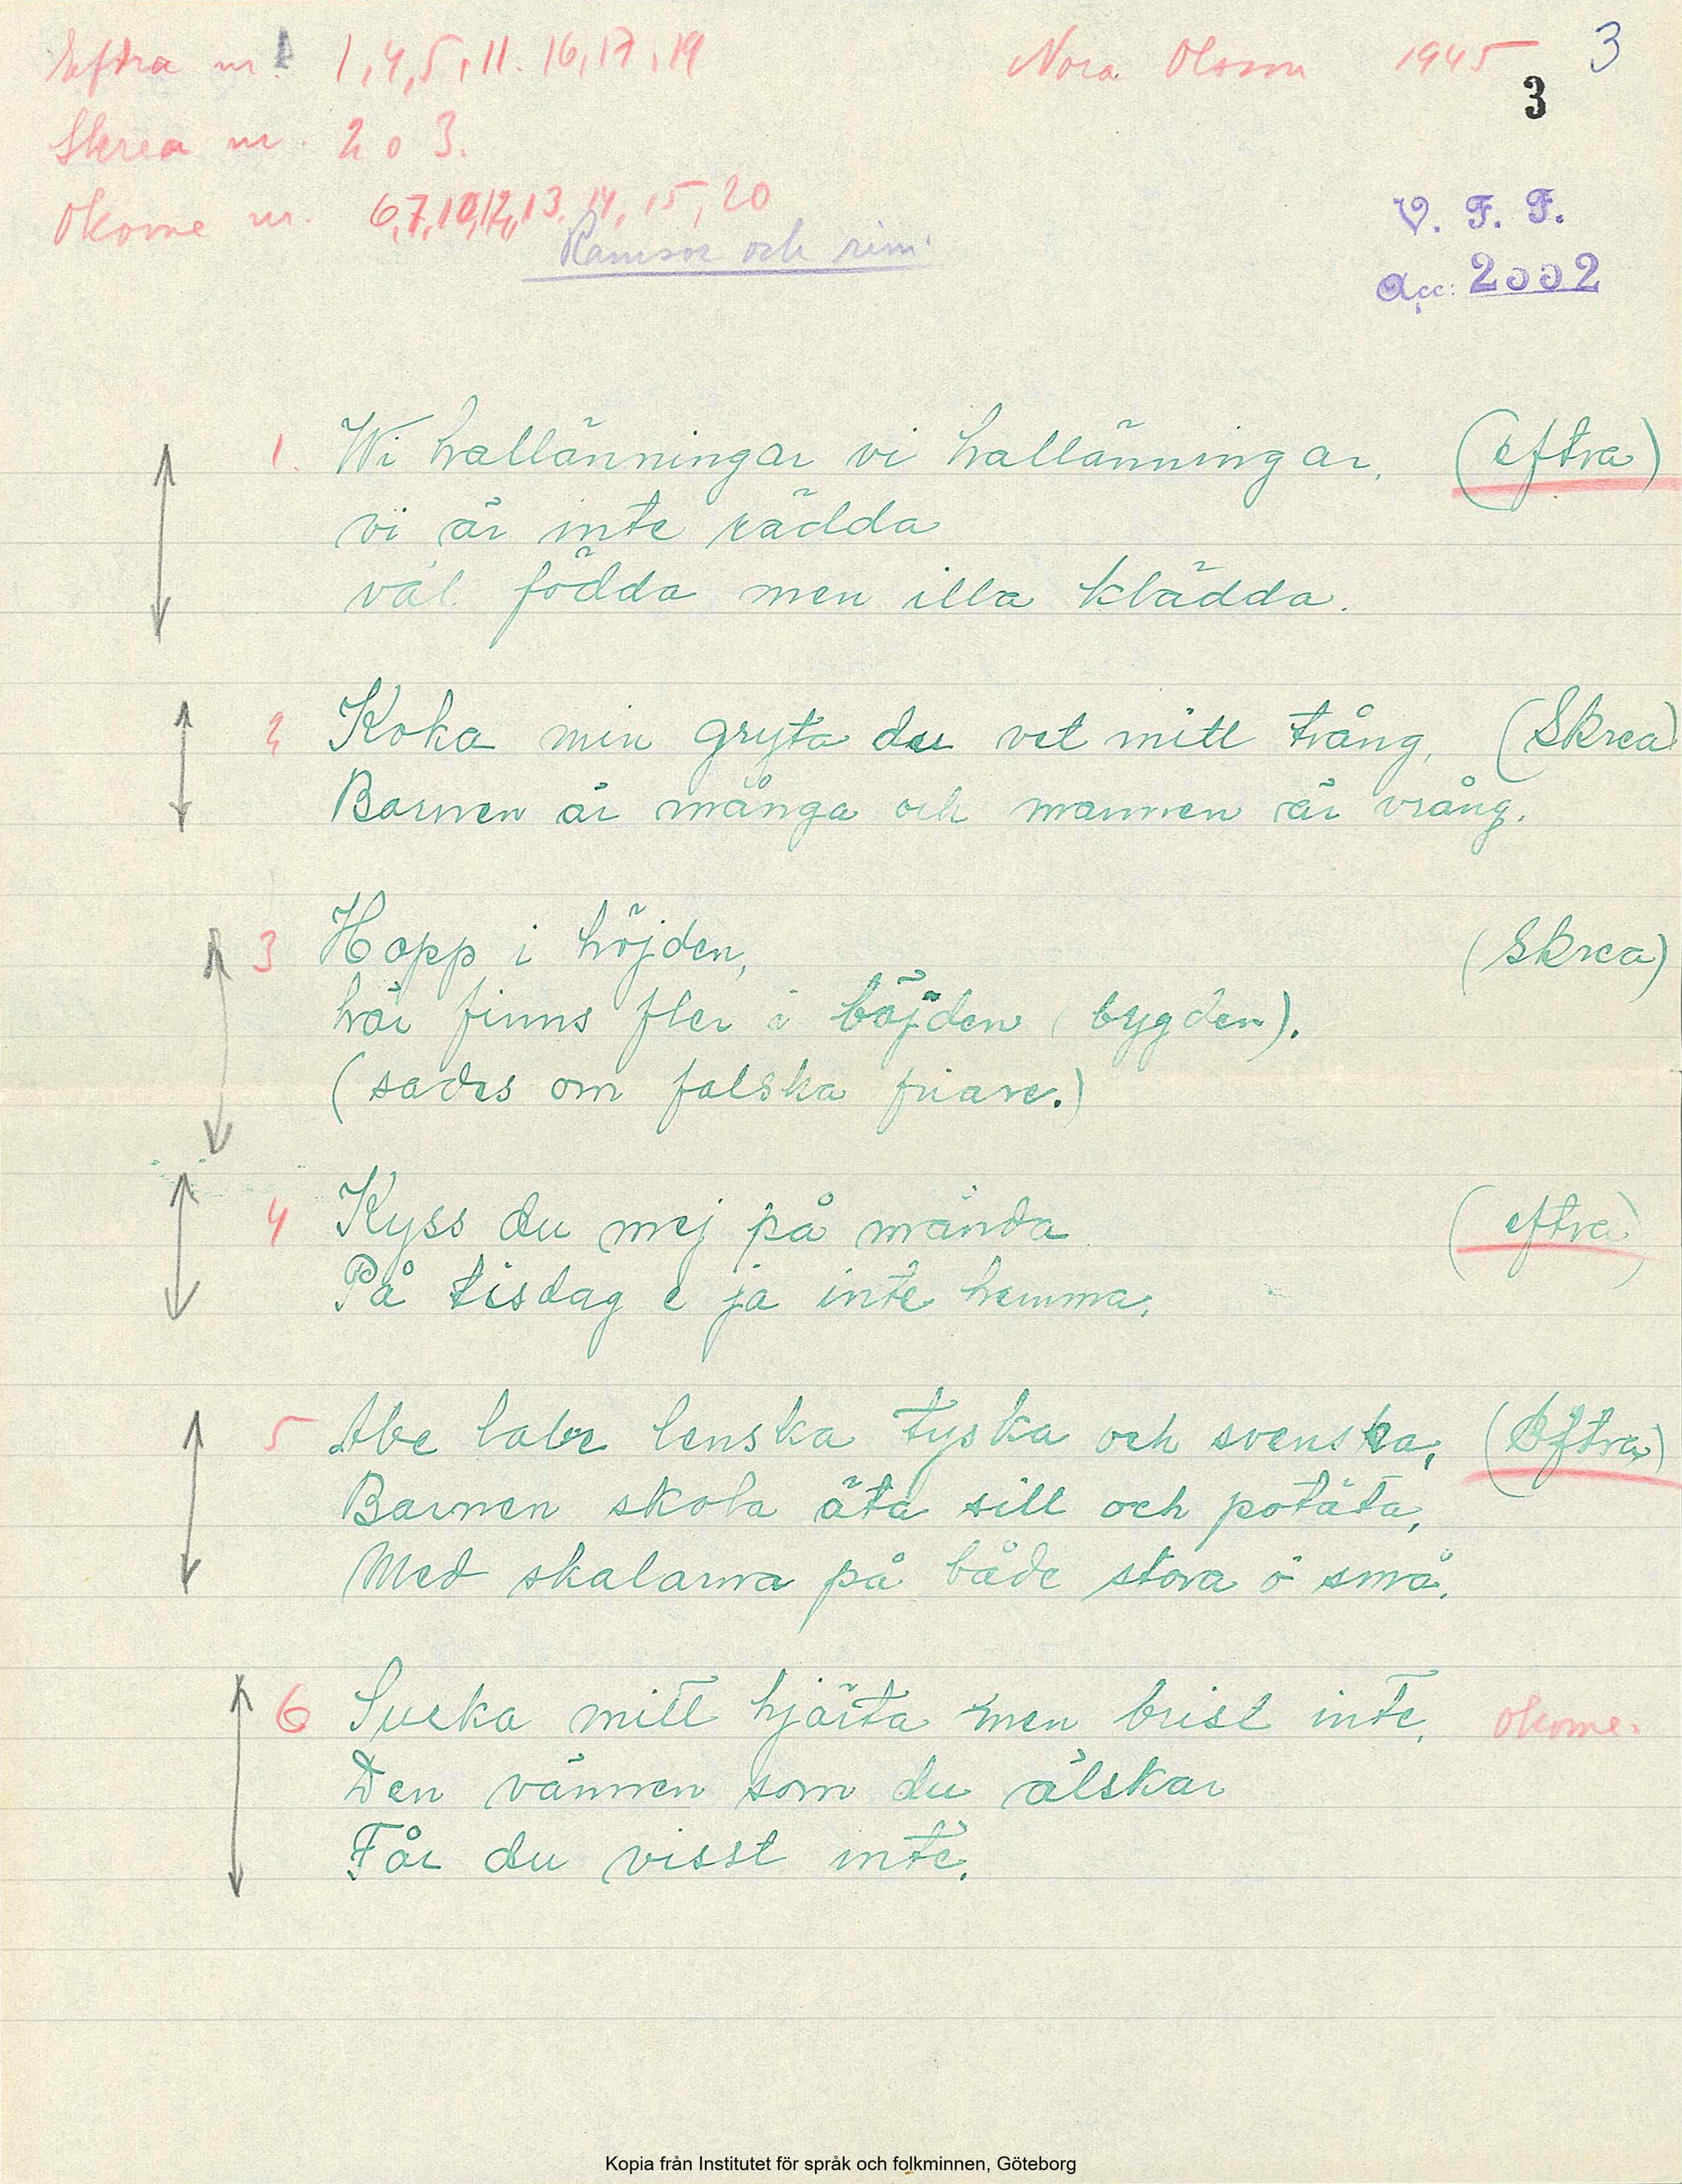 Eftra nr. 1, 4, 5, 11. 16, 17, 19
Nora Olsson 1945 3
3
Skrea nr. 2 o 3.
Okome nr. 6, 7, 10, 12, 13, 14, 15, 20
Ramsor och rim.
V. F. F.
acc: 2002
1. Wi hallänningar vi hallänningar, (eftra)
vi är inte rädda
väl födda men illa klädda.
2 Koka min gryta du vet mitt trång, (Skrea)
Barnen är många och mannen är vrång.
3 Hopp i höjden, (Skrea)
här finns fler i böjden (bygden).
(sades om falska friare.)
4 Kyss du mej på månda (eftra)
På tisdag e ja inte hemma.
5 Abe labe lenska tyska och svenska, (Eftra)
Barnen skola äta sill och potäta,
Med skalarna på både stora o små.
6 Sucka mitt hjärta men brist inte, Okome.
Den vännen som du älskar
Får du visst inte.
Kopia från Institutet för språk och folkminnen, Göteborg